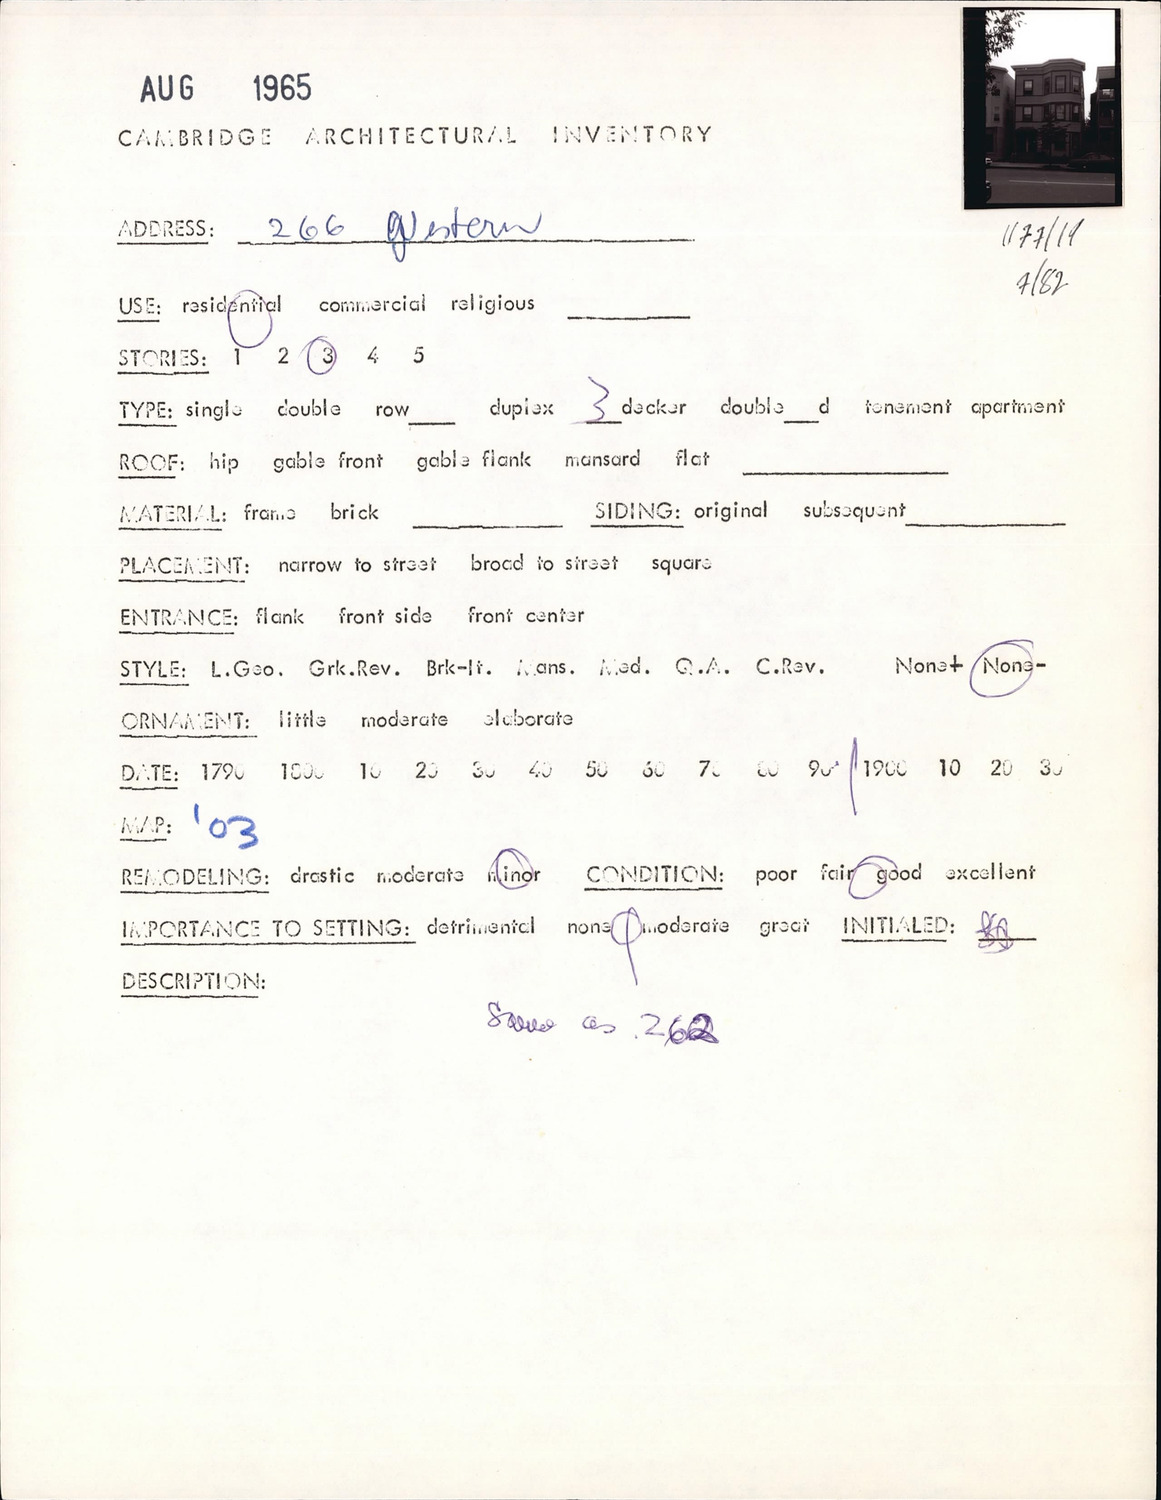 AUG 1965
CAMBRIDGE ARCHITECTURAL INVENTORY
ADDRESS: 266 Western
1177/19
7/82
USE: residential commercial religious
STORIES: 1 2 3 4 5
TYPE: single double row duplex 3 decker double d tenement apartment
ROOF: hip gable front gable flank mansard flat
MATERIAL: frame brick SIDING: original subsequent
PLACEMENT: narrow to street broad to street square
ENTRANCE: flank front side front center
STYLE: L.Geo. Grk.Rev. Brk-It. Mans. Med. Q.A. C.Rev. None+ None-
ORNAMENT: little moderate elaborate
DATE: 1790 1800 10 20 30 40 50 60 70 80 90 1900 10 20 30
MAP: '03
REMODELING: drastic moderate minor CONDITION: poor fair good excellent
IMPORTANCE TO SETTING: detrimental none moderate great INITIALED:
DESCRIPTION:
Same as 262